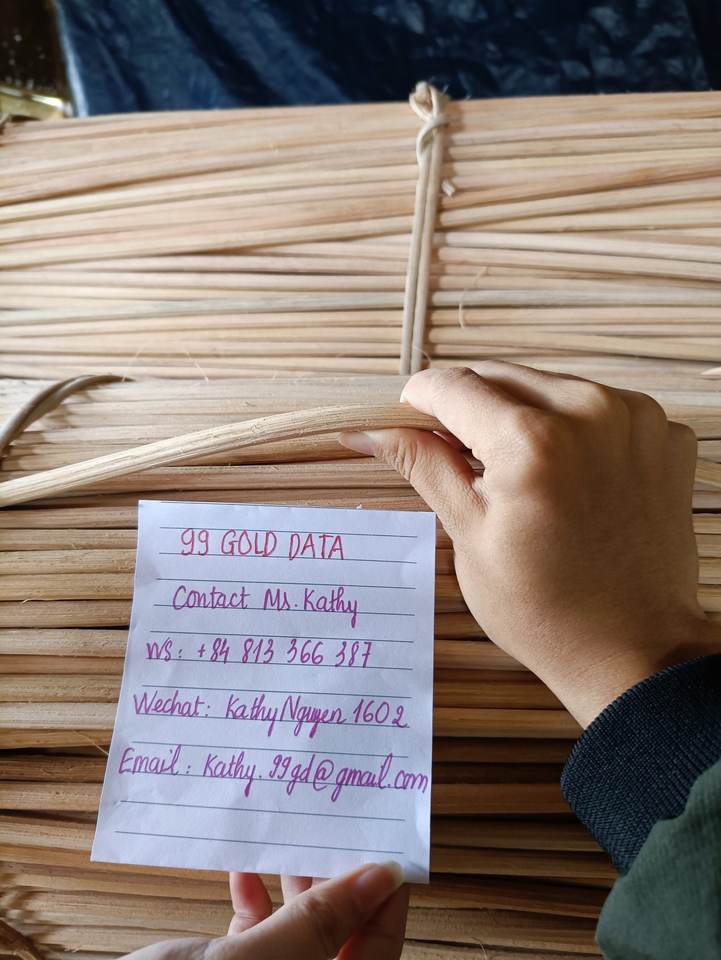 99 GOLD DATA
Contact Ms. Kathy
WS: +84 813 366 387
Wechat: KathyNguyen1602
Email: Kathy.99gd@gmail.com